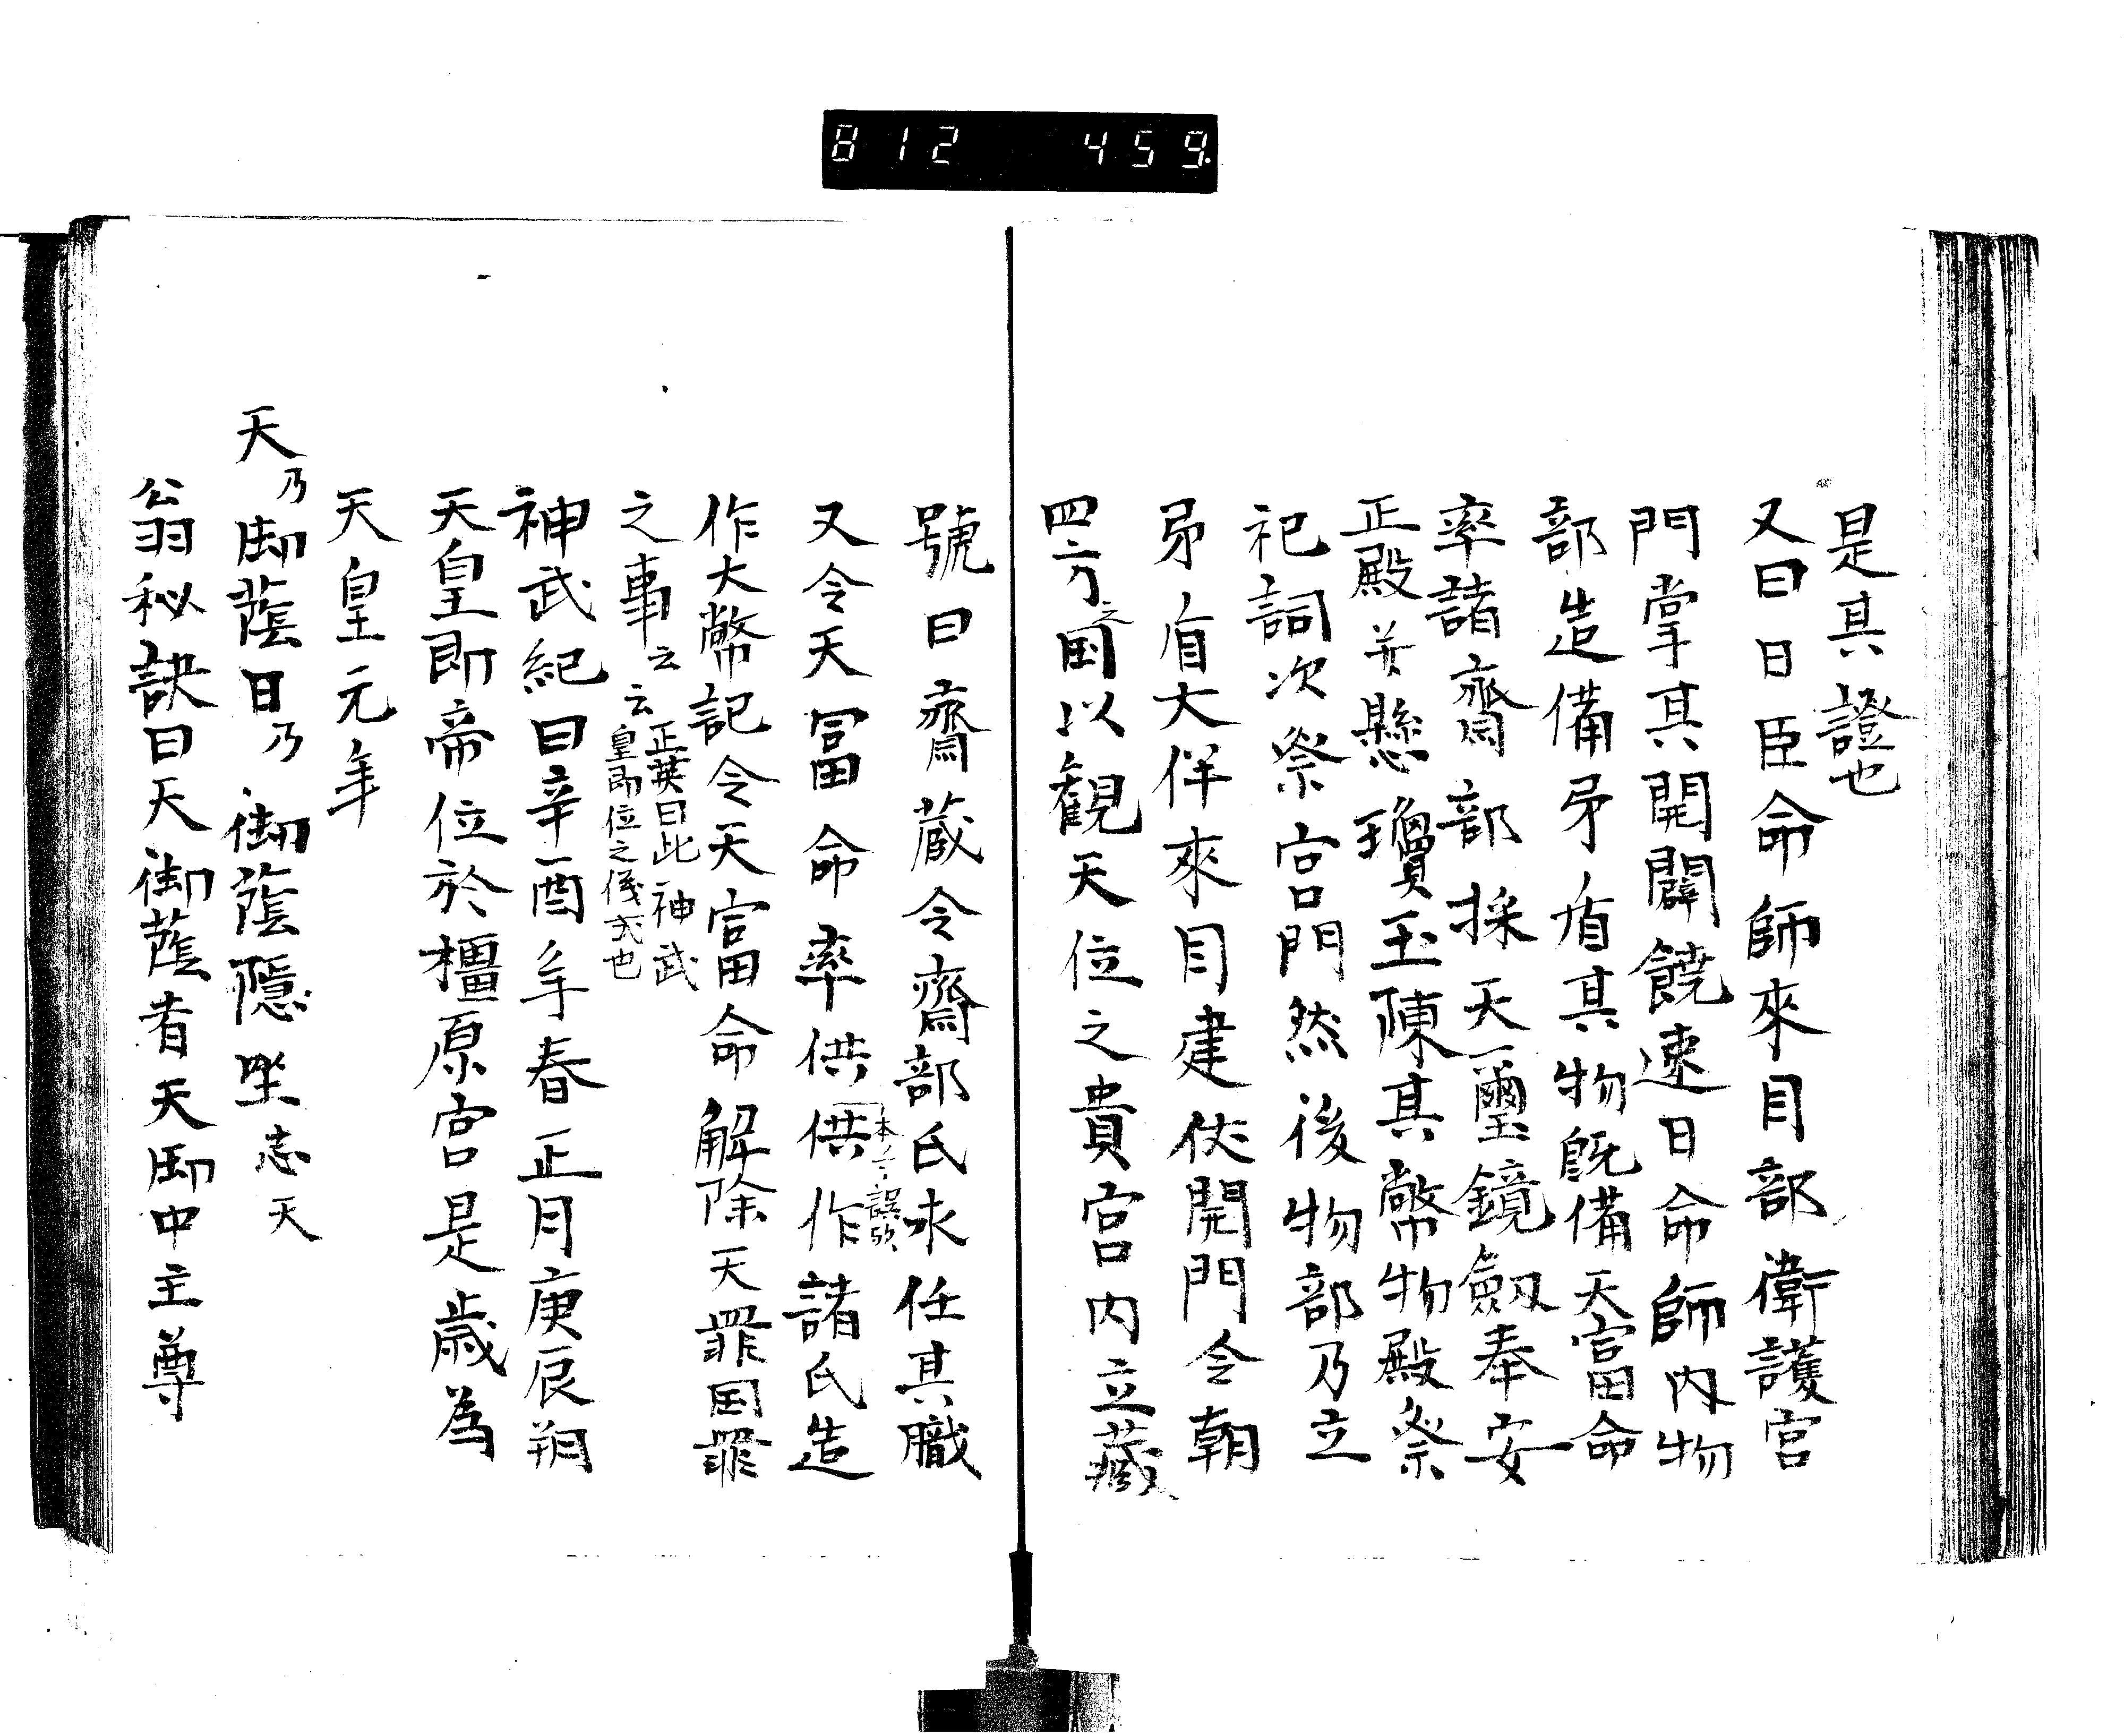 812 459.
是其證也
又曰日臣命師來目部衛護宮
門掌其開闢饒速日命師内物
部造備矛盾其物既備天富命
率諸齋部採天璽鏡劔奉安
正殿并懸瓊玉陳其幣物殿祭
祀詞次祭宮門然後物部乃立
矛盾大伴來目建仗開門令朝
四方之国以観天位之貴宮内立蔵
號曰齋蔵令齋部氏永任其職
又令天冨命率供供作諸氏造
本ノマヽ誤欤
作大幣記令天富命解除天罪国罪
之事云云
正英曰此神武
皇即位之儀式也
神武紀曰辛酉年春正月庚辰朔
天皇即帝位於橿原宮是歳為
天皇元年
天乃御蔭日乃御蔭隠坐志天
公翁秘訣曰天御蔭者天御中主尊